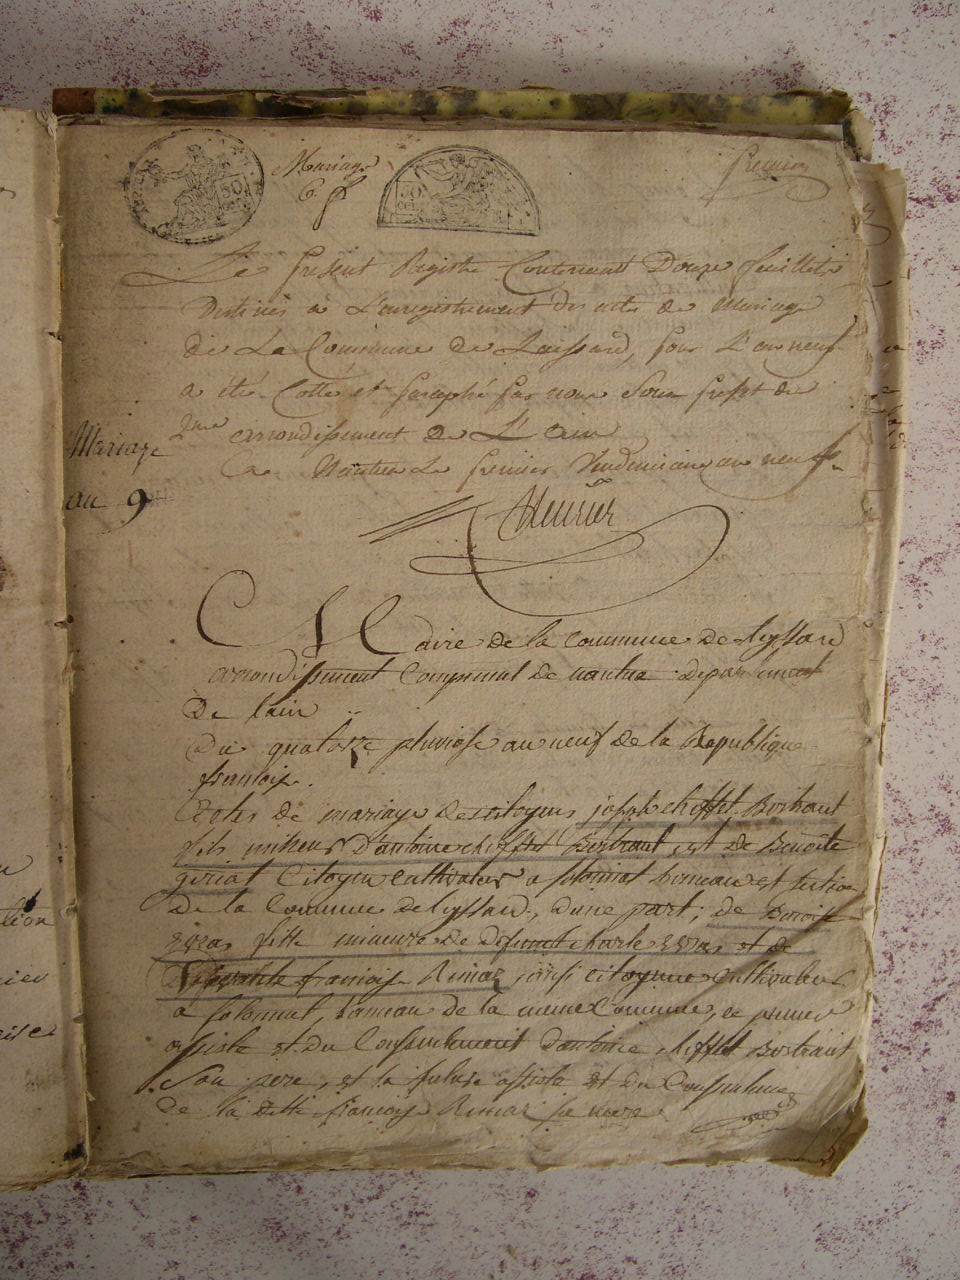 Mariage
premier
Le present Registre Contenant Douze feuillets
Destinés a L'enregistrement des actes de Mariage
de La Commune de Laissard, pour L'an neuf
a été Cotté et paraphé par nous Sous prefet du
2me arrondissement de L'ain
a Nantua Le premier Vendemiaire an neuf
Mariage
an 9
Maire de la commune de lyssard
arrondissement Communal de nantua departement
De lain
Du quatorze pluviose an neuf de la Republique
françoise.
Actes de mariage de citoyens joseph chifflet Bostraut
fils mineur d'antoine chifflet Bostraut, et de Benoite
goriat Citoyen cultivateur a solomiat hameau et section
de la Commune de lyssard, d'une part, de Benoite
fille mineure de defunt charle et de
françoise Rimaz citoyenne cultivateur
a solomiat, hameau de la meme Commune, ce premier
assisté et du Consentement d'antoine chifflet Bostraut
Son pere, et la future assisté et du Consentement
de la dette françoise Rimaz sa mere